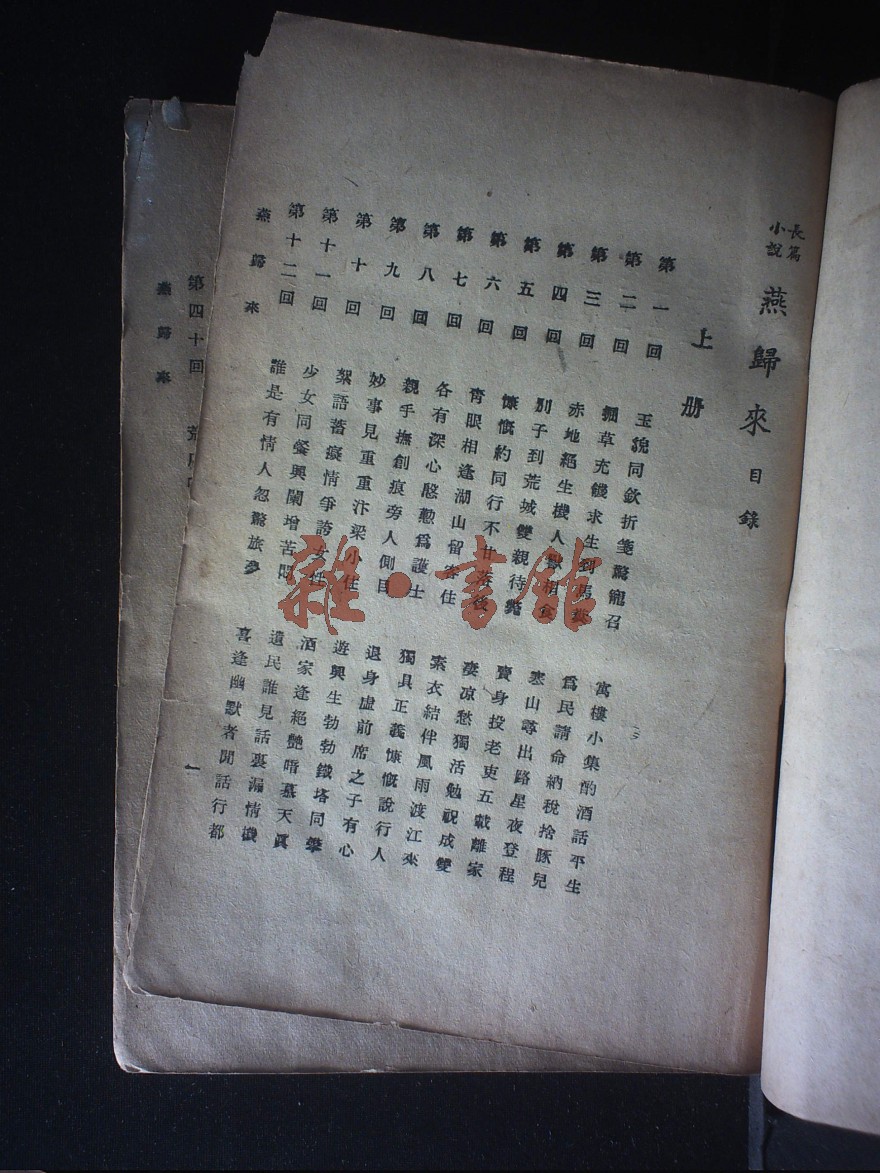 長篇小說 燕歸來 目錄
上册
第一回 玉貌同欽折箋驚寵召 寓樓小集酌酒話平生
第二回 掘草充饑求生到馬糞 爲民請命納稅捨豚兒
第三回 赤地絕生機人 相食 寒山尋出路星夜登程
第四回 別子到荒城雙親待斃 賣身投老吏五載離家
第五回 慷慨約同行不甘落後 淒凉愁獨活勉祝成雙
第六回 靑眼相逢湖山留客住 素衣結伴風雨渡江來
第七回 各有深心慇懃爲護士 獨具正義慷慨說行人
第八回 親手撫創痕旁人側目 退身虛前席之子有心
第九回 妙事見重重汴梁小住 遊興生勃勃鐵塔同攀
第十回 絮語蓄癡情爭誇女性 酒家逢絕艷暗慕天眞
第十一回 少女同餐興闌增苦悶 遺民誰見話裏漏情機
第十二回 誰是有情人忽驚旅夢 喜逢幽默者閒話行都
燕歸來 一
第四十回
燕歸來
雜·書館